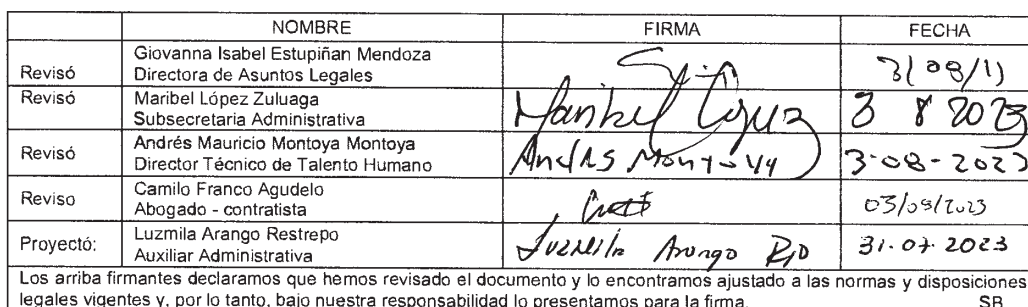 NOMBRE FIRMA FECHA
Revisó Giovanna Isabel Estupiñan Mendoza
Directora de Asuntos Legales 3(08/1)
Revisó Maribel López Zuluaga
Subsecretaria Administrativa Maribel López 3 8 2023
Revisó Andrés Mauricio Montoya Montoya
Director Técnico de Talento Humano Andrés Montoya 3-08-2023
Reviso Camilo Franco Agudelo
Abogado - contratista 03/08/2023
Proyectó: Luzmila Arango Restrepo
Auxiliar Administrativa Luzmila Arango 31.07.2023
Los arriba firmantes declaramos que hemos revisado el documento y lo encontramos ajustado a las normas y disposiciones
legales vigentes y, por lo tanto, bajo nuestra responsabilidad lo presentamos para la firma. SB